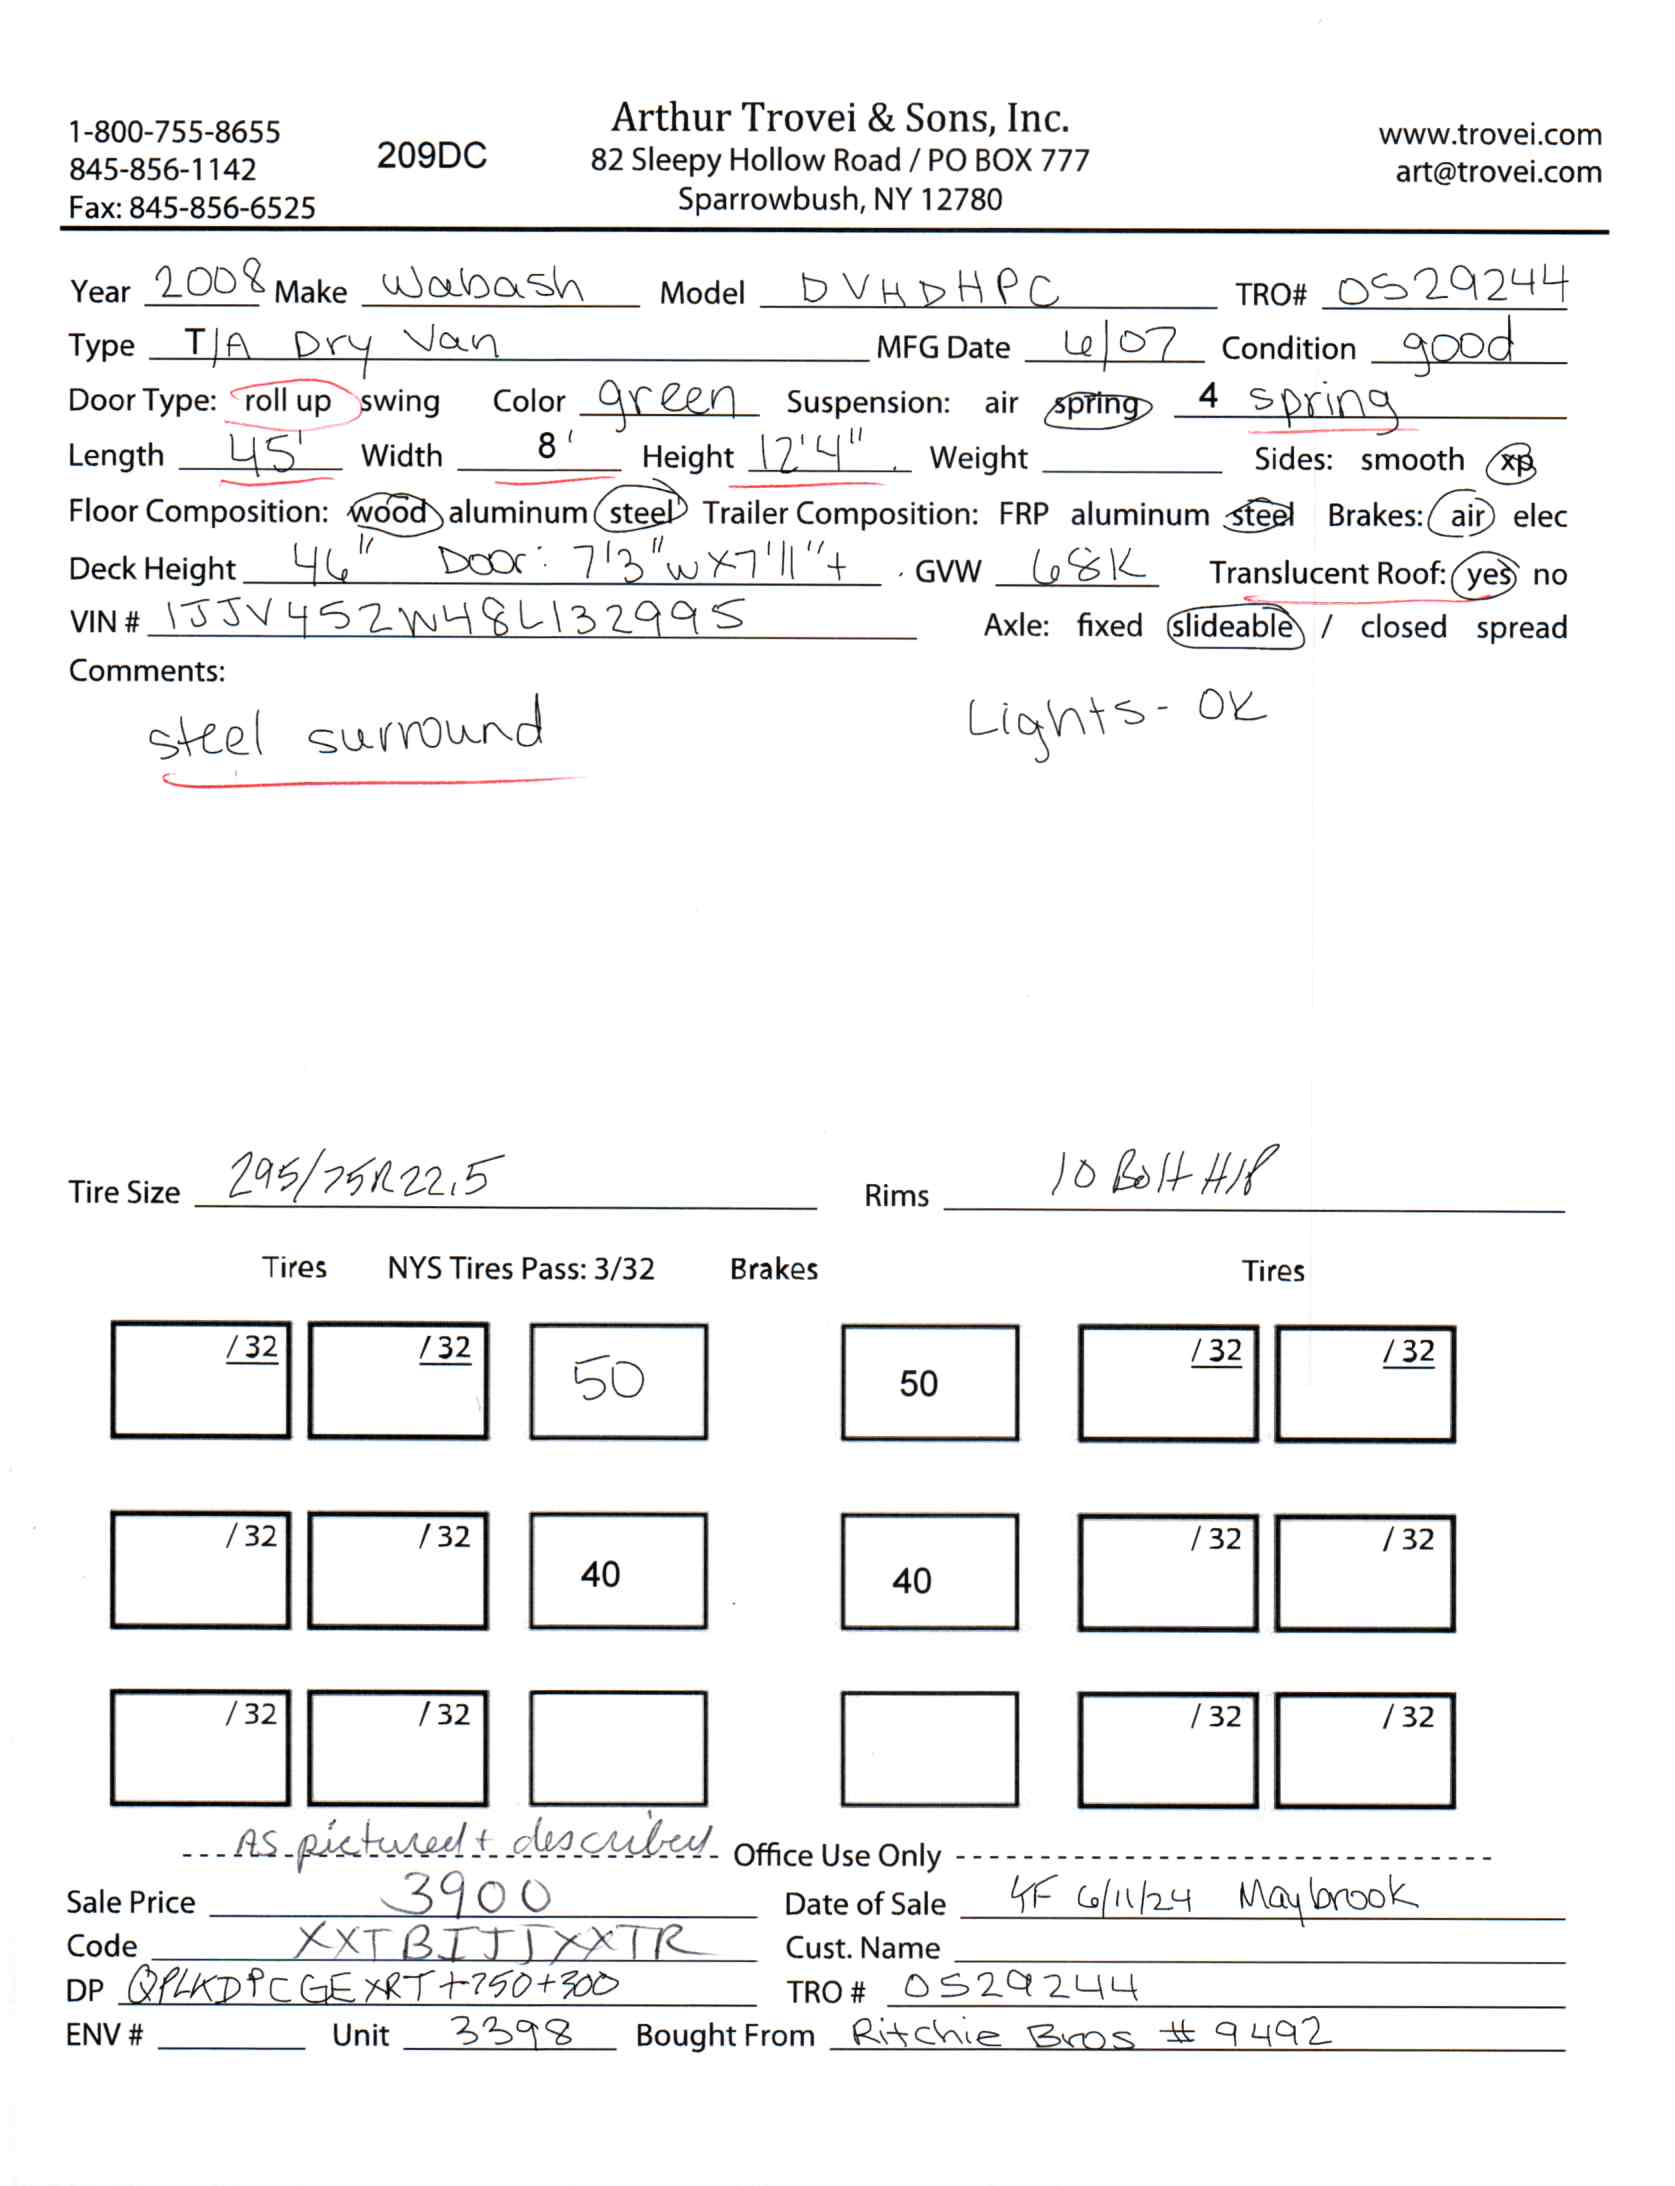 1-800-755-8655
845-856-1142
Fax: 845-856-6525
209DC
Arthur Trovei & Sons, Inc.
82 Sleepy Hollow Road / PO BOX 777
Sparrowbush, NY 12780
www.trovei.com
art@trovei.com
Year 2008 Make Wabash Model DVHDHPC TRO# 0529244
Type T/A Dry Van MFG Date 6/07 Condition good
Door Type: roll up swing Color green Suspension: air spring 4 spring
Length 45' Width 8' Height 12'4" Weight Sides: smooth xp
Floor Composition: wood aluminum steel Trailer Composition: FRP aluminum steel Brakes: air elec
Deck Height 46" Door: 7'3"w x 7'11"+ GVW 68K Translucent Roof: yes no
VIN # 1JJV452W48L132995 Axle: fixed slideable / closed spread
Comments:
steel surround Lights - OK
Tire Size 295/75R22.5 Rims 10 Bolt H/P
Tires NYS Tires Pass: 3/32 Brakes Tires
/ 32 / 32 50 50 / 32 / 32
/ 32 / 32 40 40 / 32 / 32
/ 32 / 32 / 32 / 32
As pictured + described Office Use Only
Sale Price 3900 Date of Sale 6/11/24 Maybrook
Code XXTBIJJXXTR Cust. Name
DP QPLKDPCGEXRT+750+300 TRO # 0529244
ENV # Unit 3398 Bought From Ritchie Bros # 9492